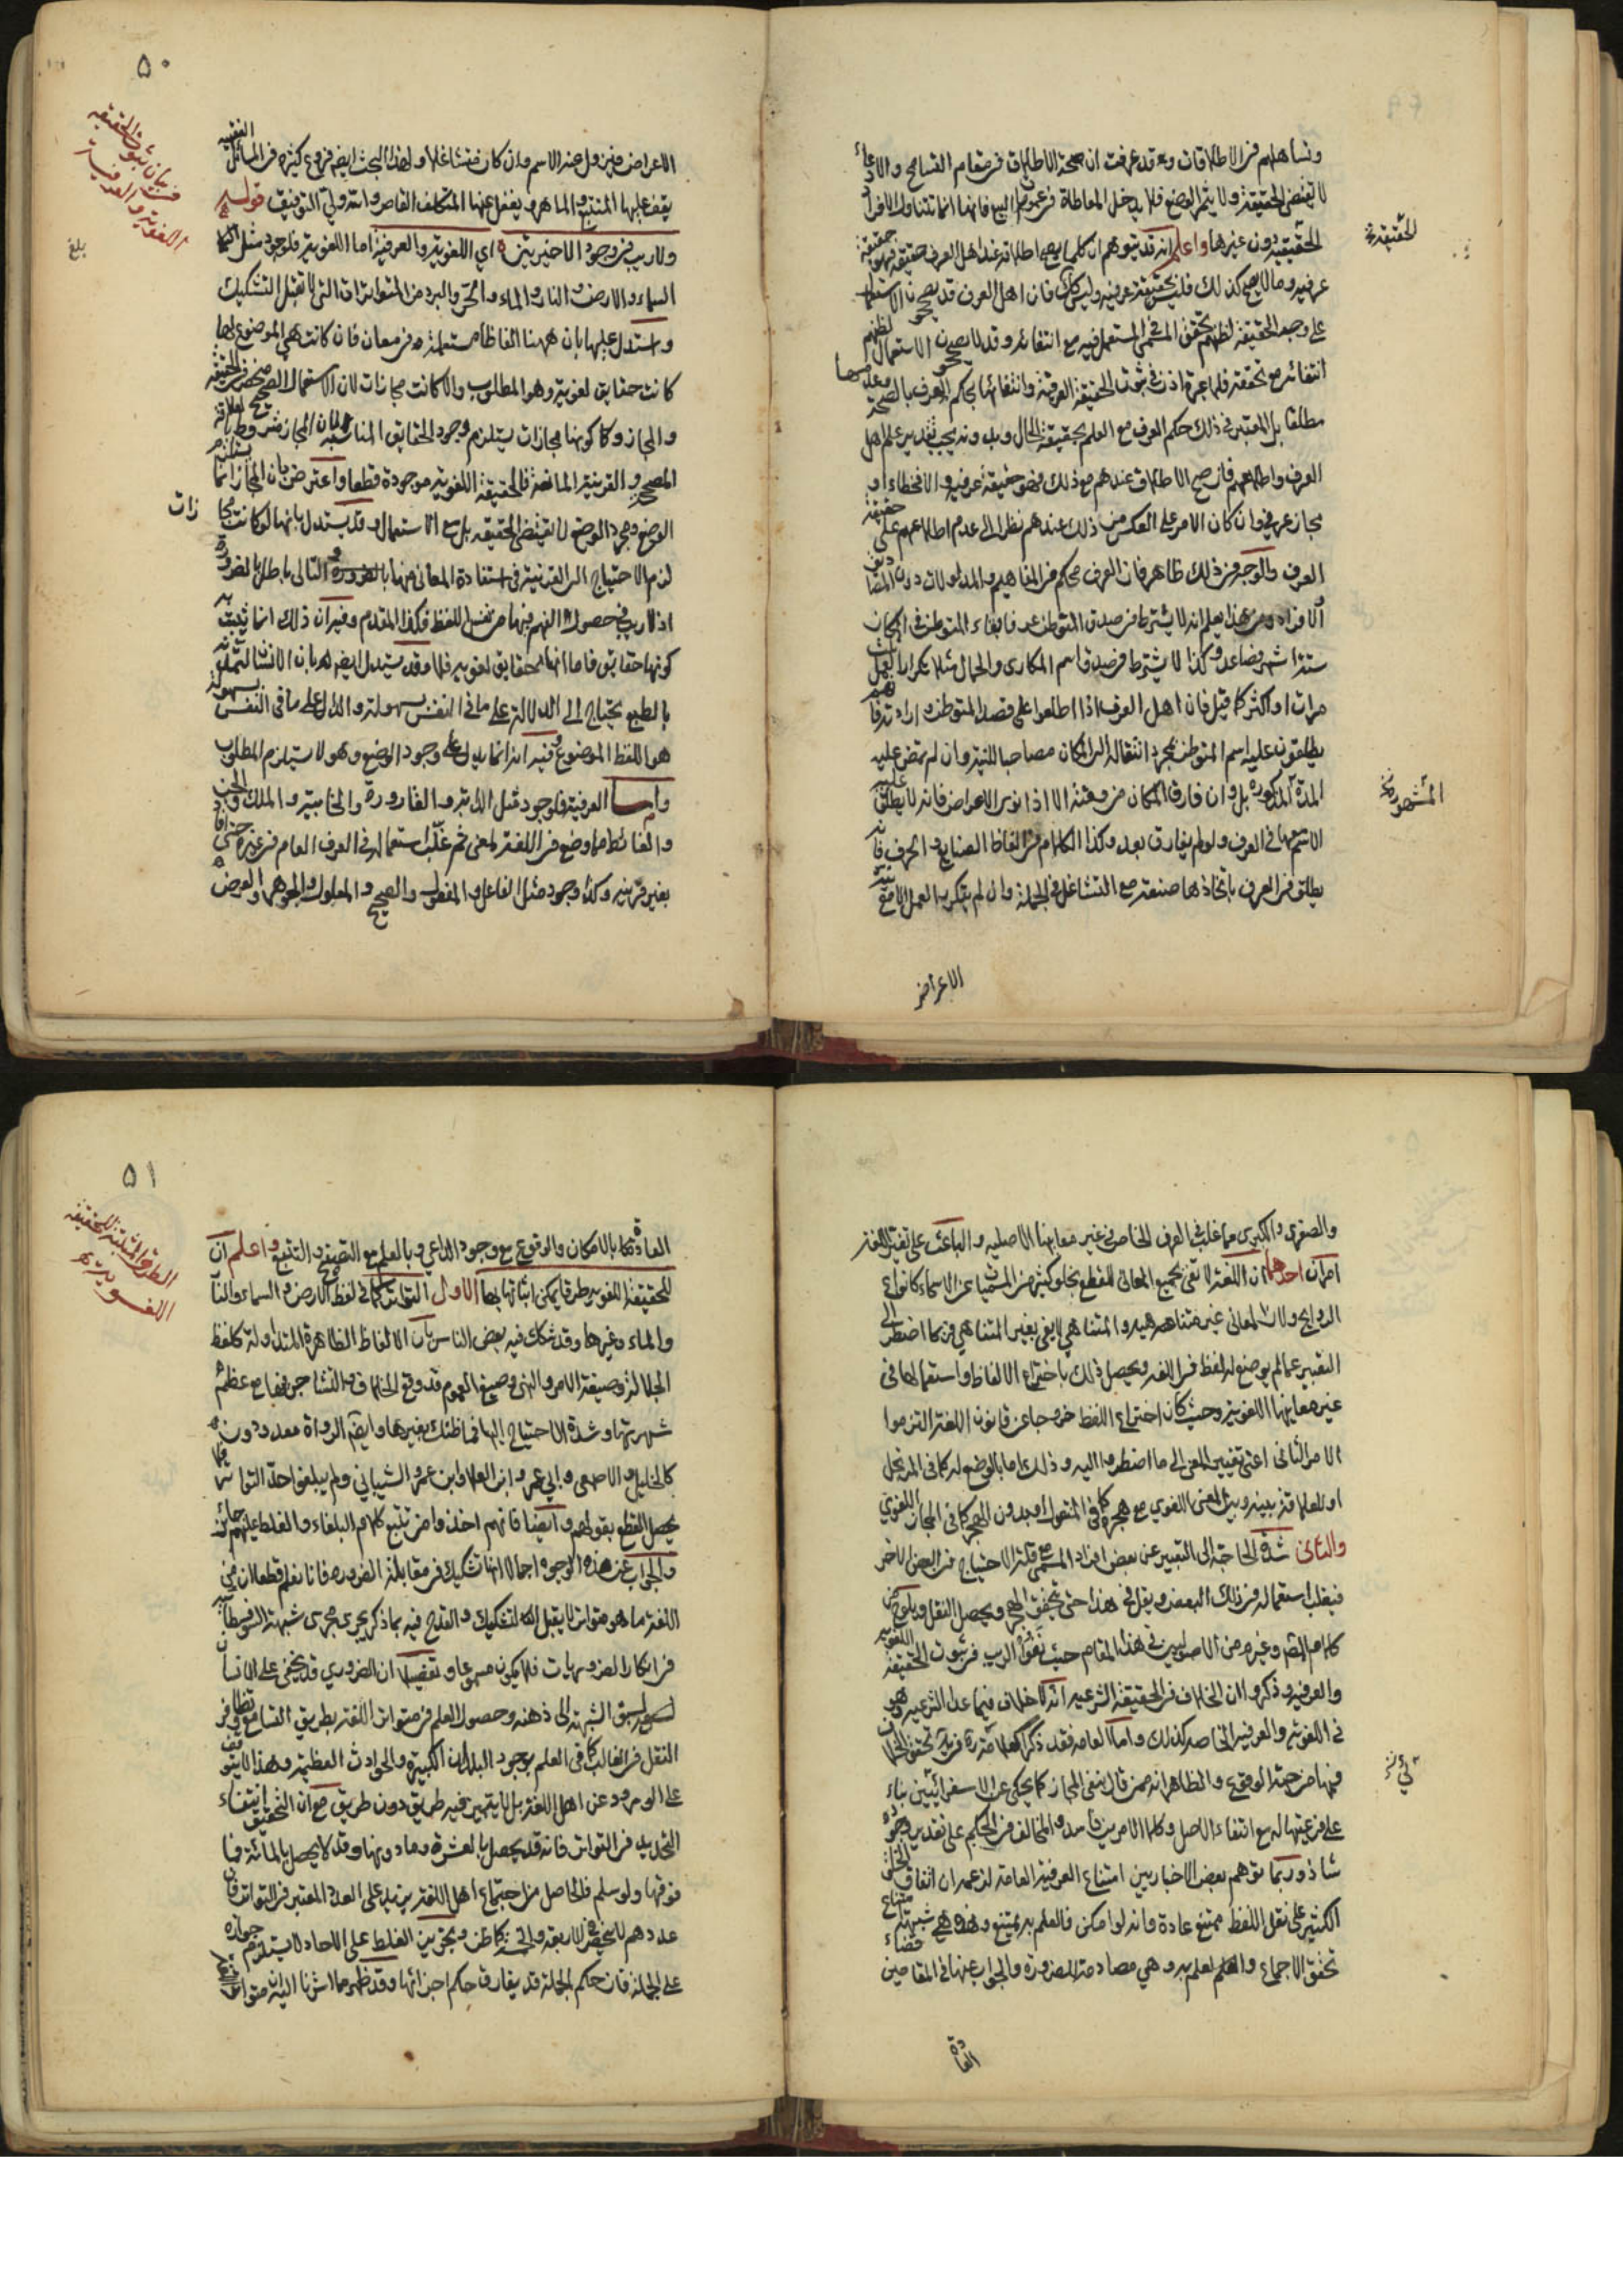 وتساهلهم في الاطلاقات وقد عرفت ان صحة الاطلاق في مقام التسامح والادعاء
لا تقتضي الحقيقة ولا يثمر الوضع فلا يدخل المعاطاة في عموم البيع فانها انما تتناول الافراد
الحقيقية دون غيرها واعلم انه قد يتوهم ان كلما يصح اطلاقه عند اهل العرف حقيقة فهو حقيقة
عرفية وما لا يصح كذلك فليس بحقيقة عرفية وليس كذلك فان اهل العرف قد يصححون الاستعمال
على وجه الحقيقة لظنهم تحقق المسمى المستعمل فيه مع انتفائه وقد لا يصححون الاستعمال لظنهم
انتفائه مع تحققه فلا عبرة اذن في ثبوت الحقيقة العرفية وانتفائها بحكم العرف بالصحة وعدمها
مطلقا بل المعتبر في ذلك حكم العرف مع العلم بحقيقة الحال وبدونه يجب تقدير علم اهل
العرف واطلاعهم فان صح الاطلاق عندهم مع ذلك فهو حقيقة عرفية والا فخطاء او
مجاز عرفي وان كان الامر على العكس من ذلك عندهم نظرا الى عدم اطلاعهم على حقيقة
العرف والوجه في ذلك ظاهر فان العرف محكم في المفاهيم والمدلولات دون المصاديق
والافراد ومن هذا يعلم انه لا يشترط في صدق المتوطن عرفا بقاء المتوطن في المكان
ستة اشهر فصاعدا وكذا لا يشترط في صدق اسم المكاري والجمال مثلا تكرار العمل ثلث
مرات او اكثر كما قيل فان اهل العرف اذا اطلعوا على قصد المتوطن وارادته فهم
يطلقون عليه اسم المتوطن بمجرد انتقاله الى المكان مصاحبا للنية وان لم تمض عليه
المدة المذكورة بل وان فارق المكان من وقته الا اذا نوى الاعراض فانه لا يطلق عليه
الاسم في العرف ولو لم يفارق بعد وكذا الكلام في الفاظ الصنايع والحرف فانه
يطلق في العرف باتخاذها صنعة مع التشاغل في الجملة وان لم يتكرر العمل الا مع نية
الاعراض
الحقيقة
المشهورة
٥٠
في بيان ثبوت الحقيقة
اللغوية والعرفية
بلغ
الاعراض فيزول عنه الاسم وان كان متشاغلا ولهذا البحث ايضا فروع كثيرة في المسائل الفقهية
يقف عليها المتتبع الماهر ويغفل عنها المتكلف القاصر والله ولي التوفيق قوله
ولا ريب في وجود الاخيرتين اي اللغوية والعرفية اما اللغوية فلوجود مثل
السماء والارض والنار والماء والحر والبرد من المتواترات التي لا تقبل التشكيك
واستدل عليها بان ههنا الفاظا مستعملة في معان فان كانت هي الموضوع لها
كانت حقايق لغوية وهو المطلوب والا كانت مجازات لان الاستعمال الصحيح منحصر في الحقيقة
والمجاز وكونها مجازات يستلزم وجود الحقايق المناسبة لان المجاز مشروط بالعلاقة
المصححة والقرينة المانعة فالحقيقة اللغوية موجودة قطعا واعترض بان المجاز انما يستلزم
الوضع ومجرد الوضع لا يقتضي الحقيقة بل مع الاستعمال وقد يستدل بانها لو كانت مجازات
لزم الاحتياج الى القرينة في استفادة المعاني منها والتالي باطل بالضرورة
اذ لا ريب في حصول الفهم فيها من نفس اللفظ فكذا المقدم وفيه ان ذلك انما يثبت به
كونها حقايق فاما انها حقايق لغوية فلا وقد يستدل ايضا بان الانسان لتمدنه
بالطبع يحتاج الى الدلالة على ما في النفس بسهولة والدال على ما في النفس بسهولة
هو اللفظ الموضوع وفيه انه انما يدل على وجود الوضع وهو لا يستلزم المطلوب
واما العرفية فلوجود مثل الدابة والقارورة والخابية والملك والجن
والغائط مما وضع في اللغة لمعنى ثم غلب استعماله في العرف العام في غيره حتى افاد
بغير قرينة وكذا وجود مثل الفاعل والمفعول والصحيح والمعلول والجوهر والعرض
والصغرى والكبرى مما غلب في العرف الخاص في غير معانيها الاصلية والباعث على تغيير اللغة
امران احدهما ان اللغة لا تفي بجميع المعاني للقطع بخلو كثير من المسميات عن الاسماء كانواع
الروايح ولان المعاني غير متناهية والمتناهي لا يفي بغير المتناهي فربما اضطر الى
التعبير عما لم يوضع له لفظ في اللغة ويحصل ذلك باختراع الالفاظ واستعمالها في
غير معانيها اللغوية وحيث كان اختراع اللفظ خروجا عن قانون اللغة التزموا
الامر الثاني اعني تغيير المعنى الى ما اضطروا اليه وذلك اما بالوضع له كما في المرتجل
او للعلاقة بينه وبين المعنى اللغوي مع هجره كما في المنقول او بدون الهجر كما في المجاز اللغوي
والثاني شدة الحاجة الى التعبير عن بعض افراد المسمى مع قلة الاحتياج في البعض الاخر
فيغلب استعماله في ذلك البعض ويقل في هذا حتى يتحقق الهجر ويحصل النقل ويلوح من
كلام المص وغيره من الاصوليين في هذا المقام حيث نفوا الريب في ثبوت الحقيقة اللغوية
والعرفية وذكروا ان الخلاف في الحقيقة الشرعية انه لا خلاف فيما عدا الشرعية وهو
في اللغوية والعرفية الخاصة كذلك واما العامة فقد ذكر العلامة ره في ية تحقق الخلاف
فيها من جهة الوقوع والظاهر انه ممن قال بنفي المجاز كما يحكى عن الاسفرائيني بناء
على فرعيتها له مع انتفاء الاصل وكلا الامرين فاسد والمخالف في الحكم على تقدير وجوده
شاذ وربما توهم بعض الاخباريين امتناع العرفية العامة لزعمه ان اتفاق الخلق
الكثير على نقل اللفظ ممتنع عادة وانه لو امكن فالعلم به ممتنع وهذه هي شبهة امتناع
تحقق الاجماع والعلم به وهي مصادمة للضرورة والجواب عنها في المقامين قضاء
العادة
٥١
الطرق المثبتة للحقيقة
اللغوية
العادة بالامكان والوقوع مع وجود الداعي وبالعلم مع التصفح والتتبع واعلم ان
للحقيقة اللغوية طرقا يمكن اثباتها بها الاول التواتر كما في لفظ الارض والسماء والنار
والماء وغيرها وقد شكك فيه بعض الناس بان الالفاظ الظاهرة المتداولة كلفظ
الجلالة وصيغة الامر والنهي وصيغ العموم قد وقع الخلاف والتشاجر فيها مع عظم
شهرتها وشدة الاحتياج اليها فما ظنك بغيرها وايضا الرواة معدودون
كالخليل والاصمعي وابي عمرو ابن العلا وابن عمرو الشيباني ولم يبلغوا حد التواتر فلا
يحصل القطع بقولهم وايضا فانهم اخذوا من تتبع كلام البلغاء والغلط عليهم جائز
والجواب عن هذه الوجوه اجمالا انها تشكيك في مقابلة الضرورة فانا نعلم قطعا ان من
اللغة ما هو متواتر لا يقبل التشكيك والقدح فيه بما ذكر يجري مجرى شبهة السوفسطائية
في انكار الضروريات فلا يكون مسموعا وتفصيلا ان الضروري قد يخفى على الانسان
لسبق الشبهة الى ذهنه وحصول العلم في متواتر اللغة بطريق التسامع وتظافر
النقل في الغالب كما في العلم بوجود البلدان الكبيرة والحوادث العظيمة وهذا لا يتوقف
على الورود عن اهل اللغة بل لا يتعين فيه طريق دون طريق مع ان التحقيق انتفاء
التحديد في التواتر فانه قد يحصل بالعشرة وما دونها وقد لا يحصل بالمائة فما
فوقها ولو سلم فالحاصل من اجتماع اهل اللغة يزيد على العدد المعتبر في التواتر فان
عددهم لا ينحصر في الاربعة والخمسة كما ظن وتجويز الغلط على الاحاد لا يستلزم جوازه
على الجملة فان حكم الجملة قد يفارق حكم اجزائها وقد ظهر مما اشرنا اليه ان متواتر